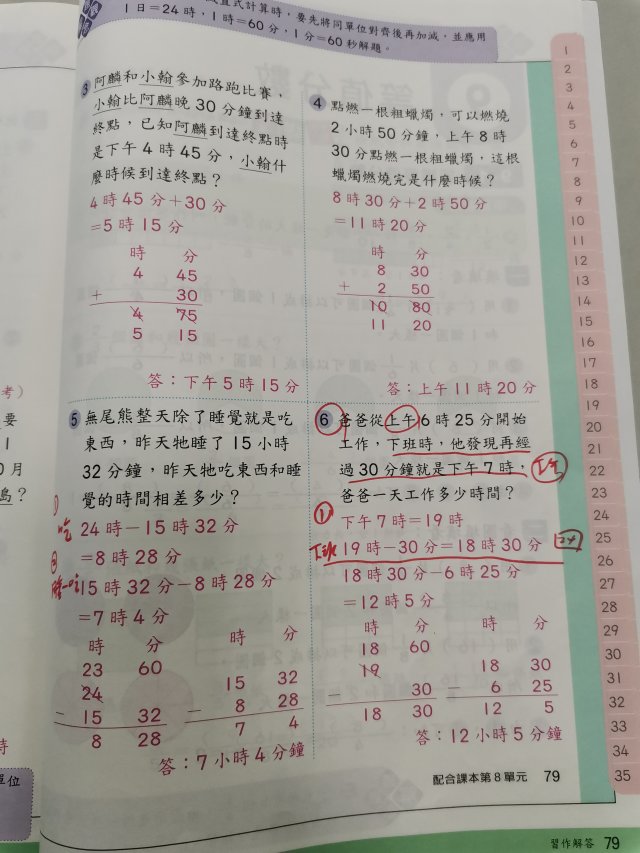 直式計算時,要先將同單位對齊後再加減,並應用
1日=24時,1時=60分,1分=60秒解題。
3 阿麟和小翰參加路跑比賽,
小翰比阿麟晚30分鐘到達
終點,已知阿麟到達終點時
是下午4時45分,小翰什
麼時候到達終點?
4時45分+30分
=5時15分
時 分
4 45
+ 30
4 75
5 15
答:下午5時15分
4 點燃一根粗蠟燭,可以燃燒
2小時50分鐘,上午8時
30分點燃一根粗蠟燭,這根
蠟燭燃燒完是什麼時候?
8時30分+2時50分
=11時20分
時 分
8 30
+ 2 50
10 80
11 20
答:上午11時20分
5 無尾熊整天除了睡覺就是吃
東西,昨天牠睡了15小時
32分鐘,昨天牠吃東西和睡
覺的時間相差多少?
①
吃 24時-15時32分
=8時28分
②
睡-吃 15時32分-8時28分
=7時4分
時 分
23 60
24
- 15 32
8 28
時 分
15 32
- 8 28
7 4
答:7小時4分鐘
6 爸爸從上午6時25分開始
工作,下班時,他發現再經
過30分鐘就是下午7時,
爸爸一天工作多少時間?
① 下午7時=19時
下班 19時-30分=18時30分
18時30分-6時25分
=12時5分
時 分
18 60
19
- 30
18 30
時 分
18 30
- 6 25
12 5
答:12小時5分鐘
配合課本第8單元 79
習作解答 79
1
2
3
4
5
6
7
8
9
10
11
12
13
14
15
16
17
18
19
20
21
22
23
24
25
26
27
28
29
30
31
32
33
34
35
考)
要
1
0月
島?
時
單位